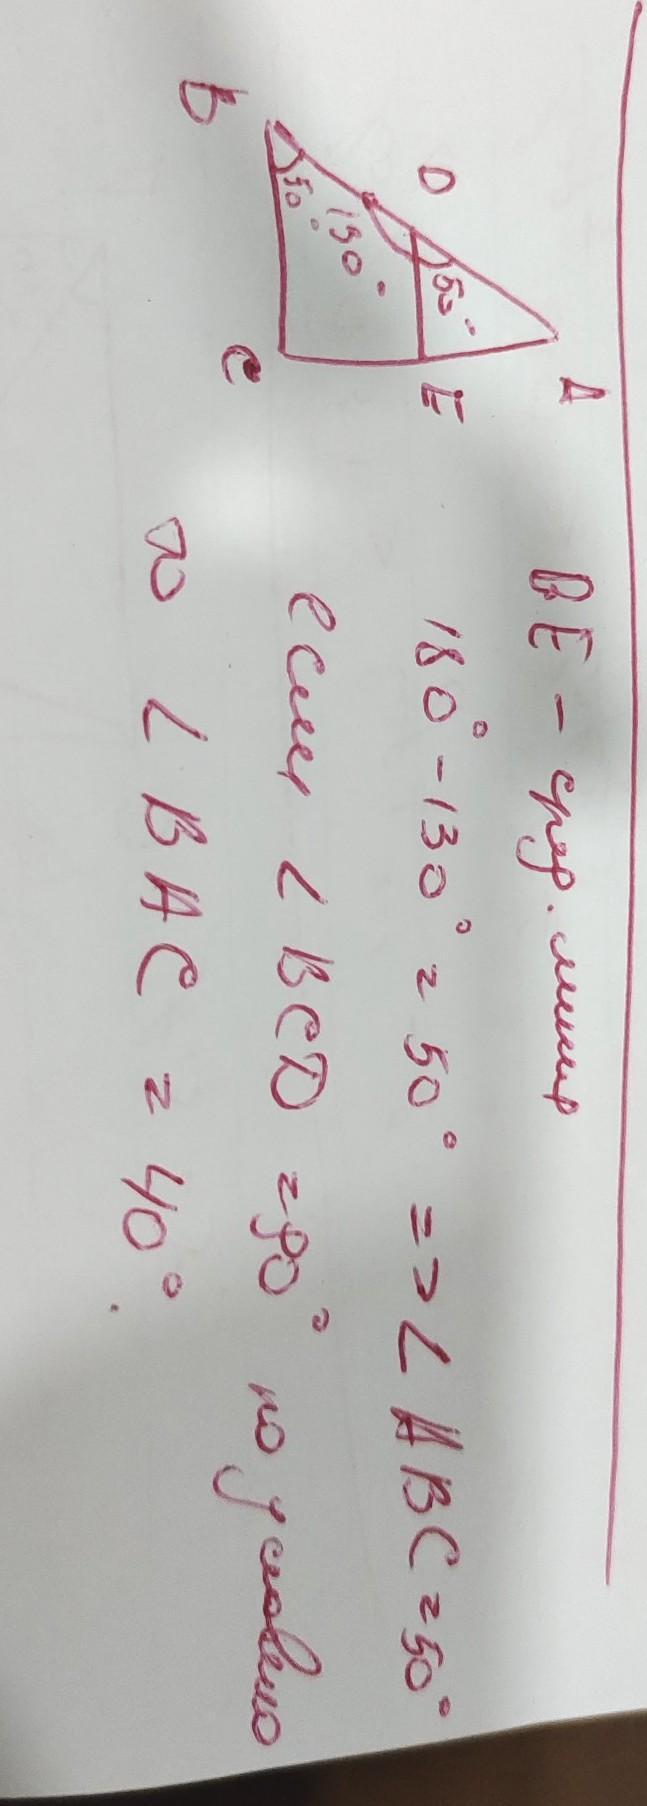 A
D
53°
E
130°
50°
B
C
DE - сред. линия
180° - 130° = 50° => ∠ ABC = 50°
если ∠ BCD = 90° по условию
то ∠ BAC = 40°.